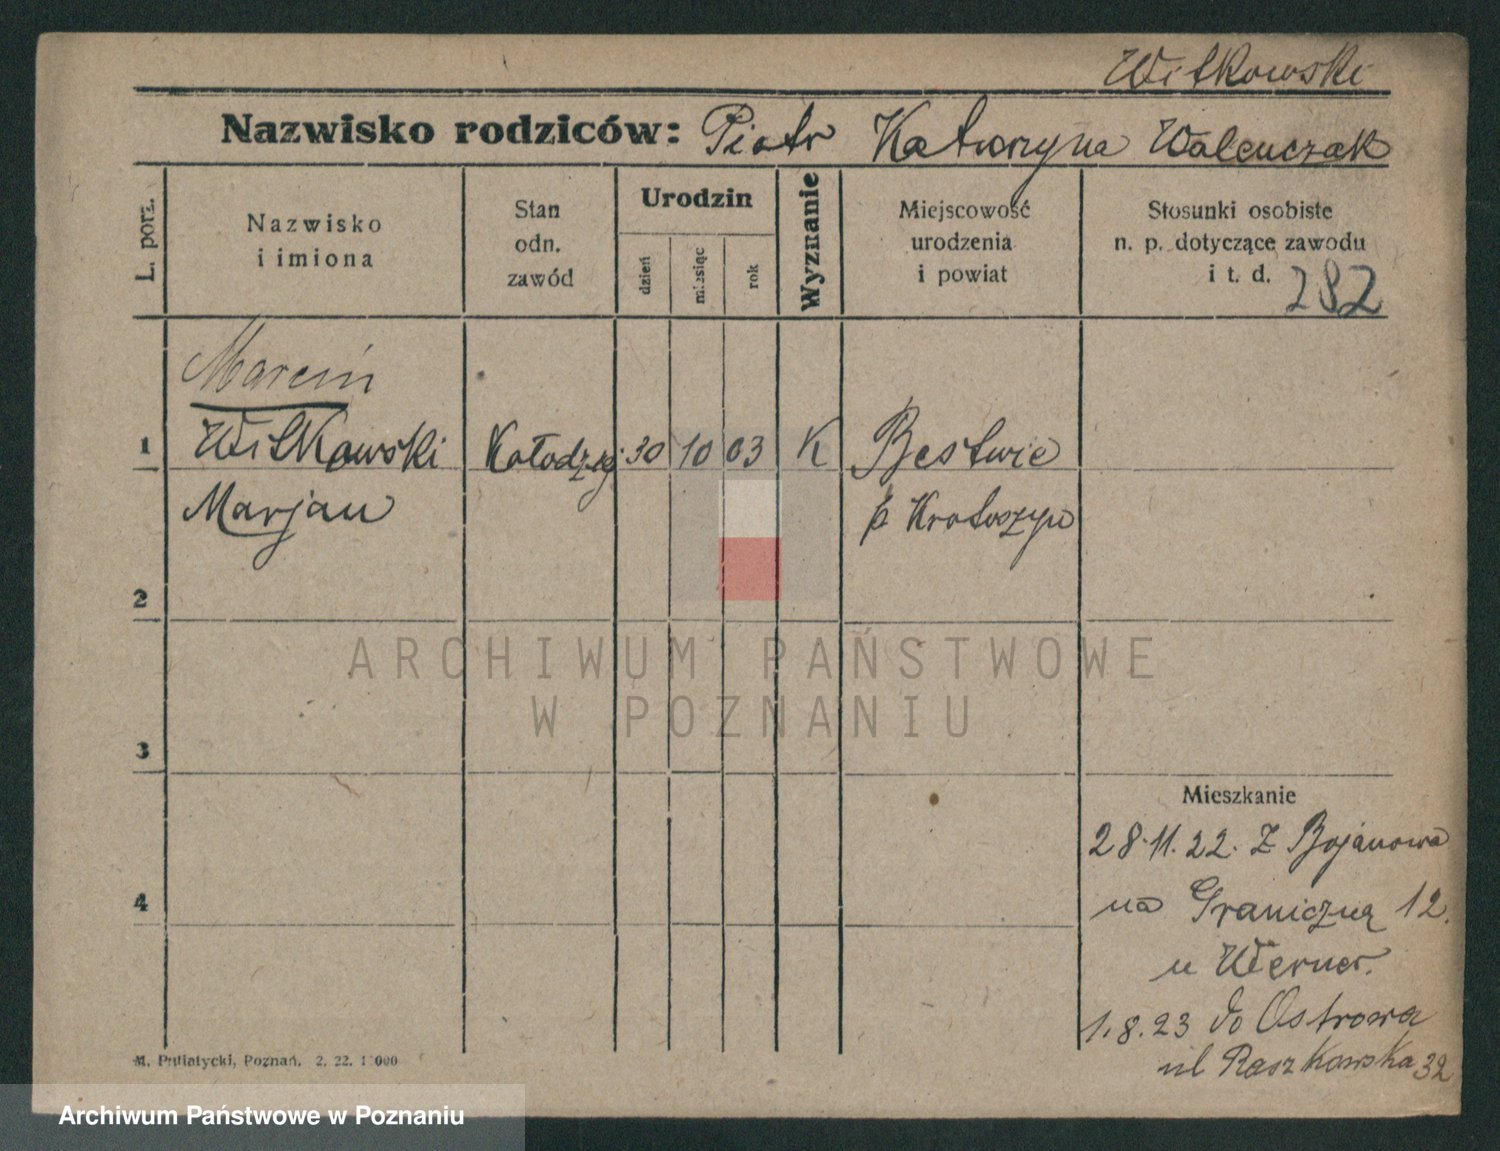 Witkowski
Nazwisko rodziców: Piotr Katarzyna Walenczak
L. porz.
Nazwisko
i imiona
Stan
odn.
zawód
Urodzin
dzień
miesiąc
rok
Wyznanie
Miejscowość
urodzenia
i powiat
Stosunki osobiste
n. p. dotyczące zawodu
i t. d. 282
Marcin
1 Witkowski Kołodziej 30 10 03 K Bestwie
Marjan p Krotoszyn
2
3
4
Mieszkanie
28.11.22. Z Bojanowa
na Graniczną 12.
u Werner.
1.8.23 do Ostrowa
ul Raszkowska 32
M. Putiatycki, Poznań. 2. 22.
ARCHIWUM PAŃSTWOWE
W POZNANIU
Archiwum Państwowe w Poznaniu